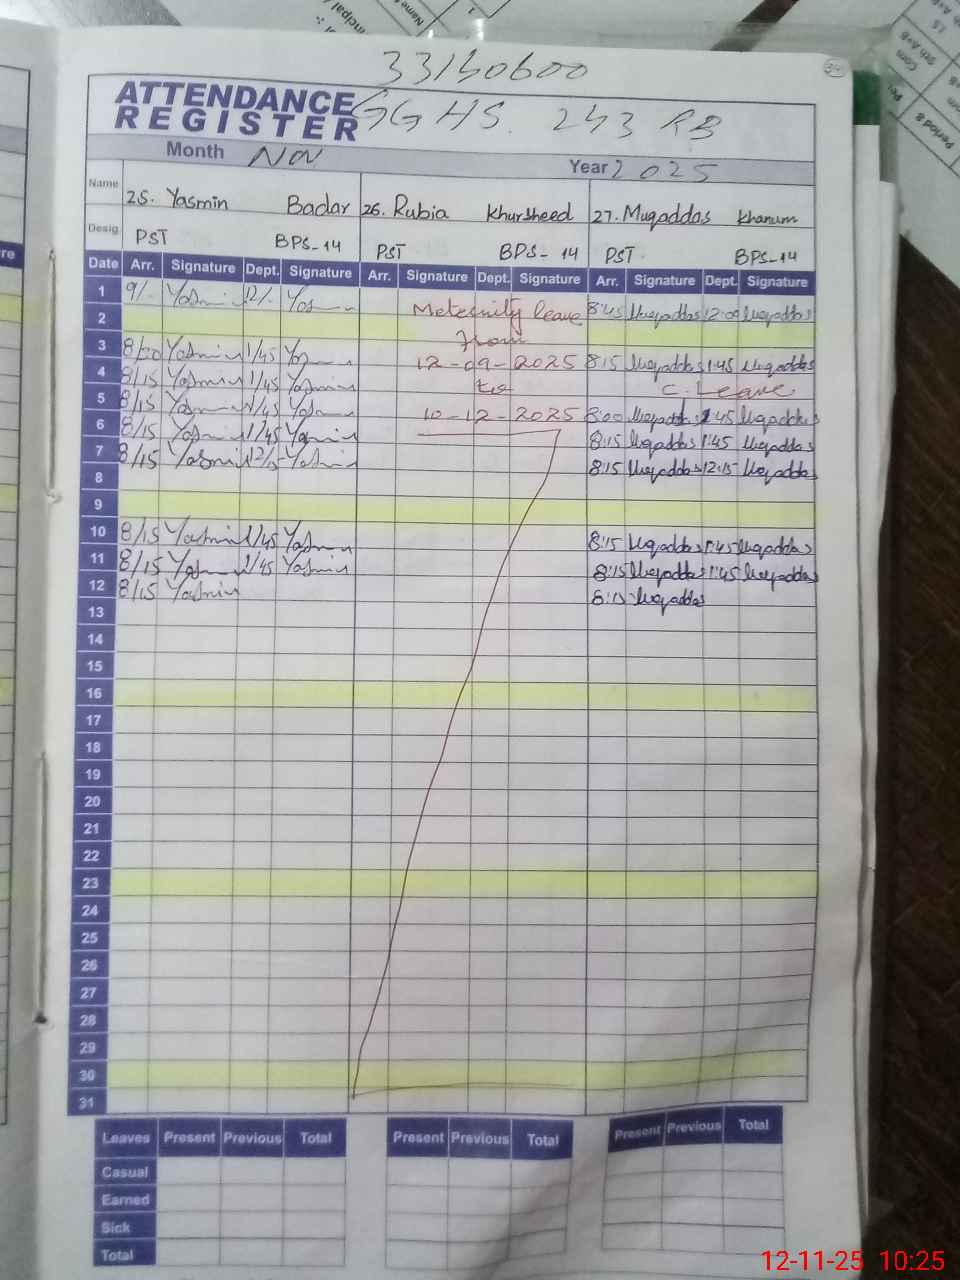 33130600
ATTENDANCE GGHS. 243 RB
REGISTER
Month Nov Year 2025
Name 25. Yasmin Badar 26. Rubia Khursheed 27. Muqaddas Khanum
Desig. PST BPS-14 PST BPS-14 PST BPS-14
Date Arr. Signature Dept. Signature Arr. Signature Dept. Signature Arr. Signature Dept. Signature
1 9/- Yasmin 12/- Yasmin Meternity leave 8:45 Muqaddas 12:00 Muqaddas
2 from
3 8/00 Yasmin 1/45 Yasmin 12-09-2025 8:15 Muqaddas 1:45 Muqaddas
4 8/15 Yasmin 1/45 Yasmin to C. Leave
5 8/15 Yasmin 1/45 Yasmin 10-12-2025 8:00 Muqaddas 1:45 Muqaddas
6 8/15 Yasmin 1/45 Yasmin 8:15 Muqaddas 1:45 Muqaddas
7 8/15 Yasmin Yasmin 8:15 Muqaddas 12:15 Muqaddas
8
9
10 8/15 Yasmin 1/45 Yasmin 8:15 Muqaddas 1:45 Muqaddas
11 8/15 Yasmin 1/45 Yasmin 8:15 Muqaddas 1:45 Muqaddas
12 8/15 Yasmin 8:15 Muqaddas
13
14
15
16
17
18
19
20
21
22
23
24
25
26
27
28
29
30
31
Leaves Present Previous Total Present Previous Total Present Previous Total
Casual
Earned
Sick
Total
12-11-25 10:25